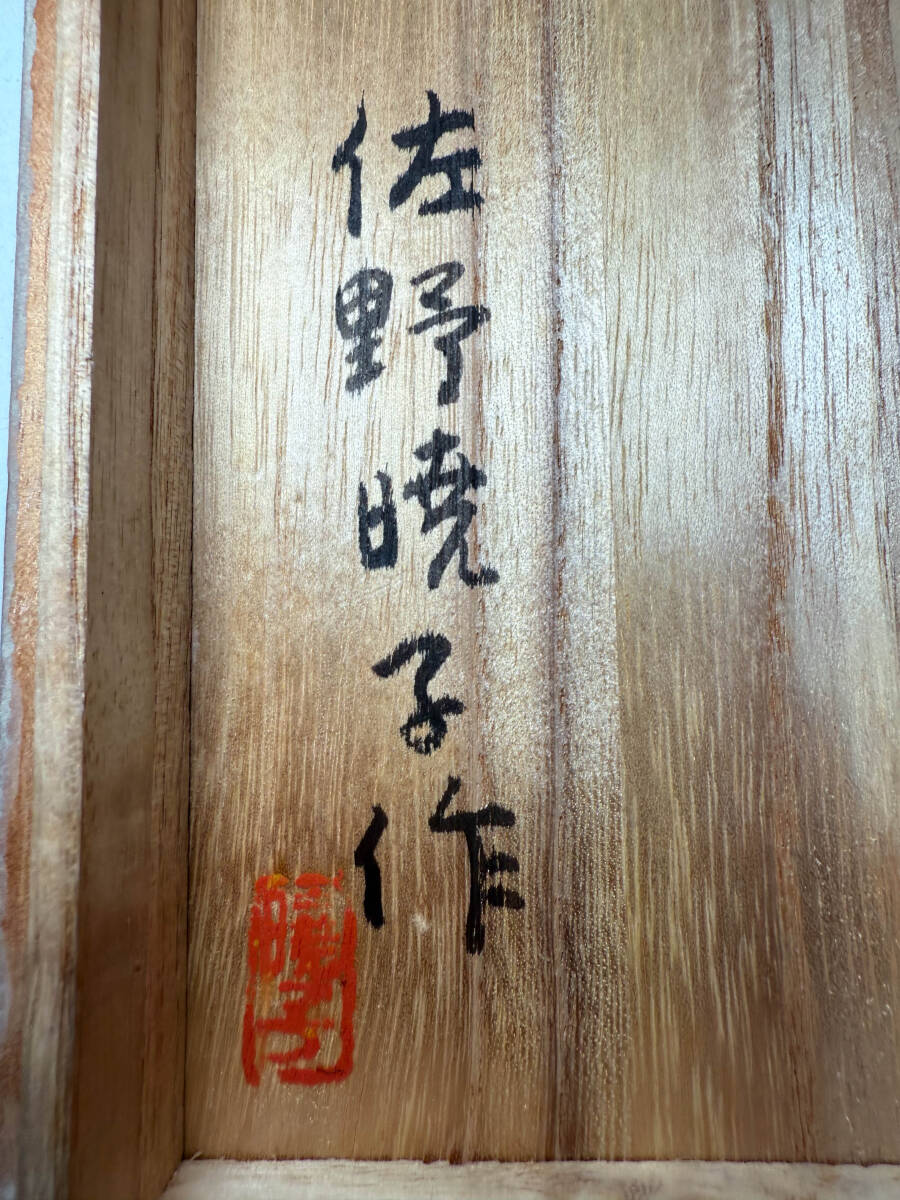 佐野曉子作